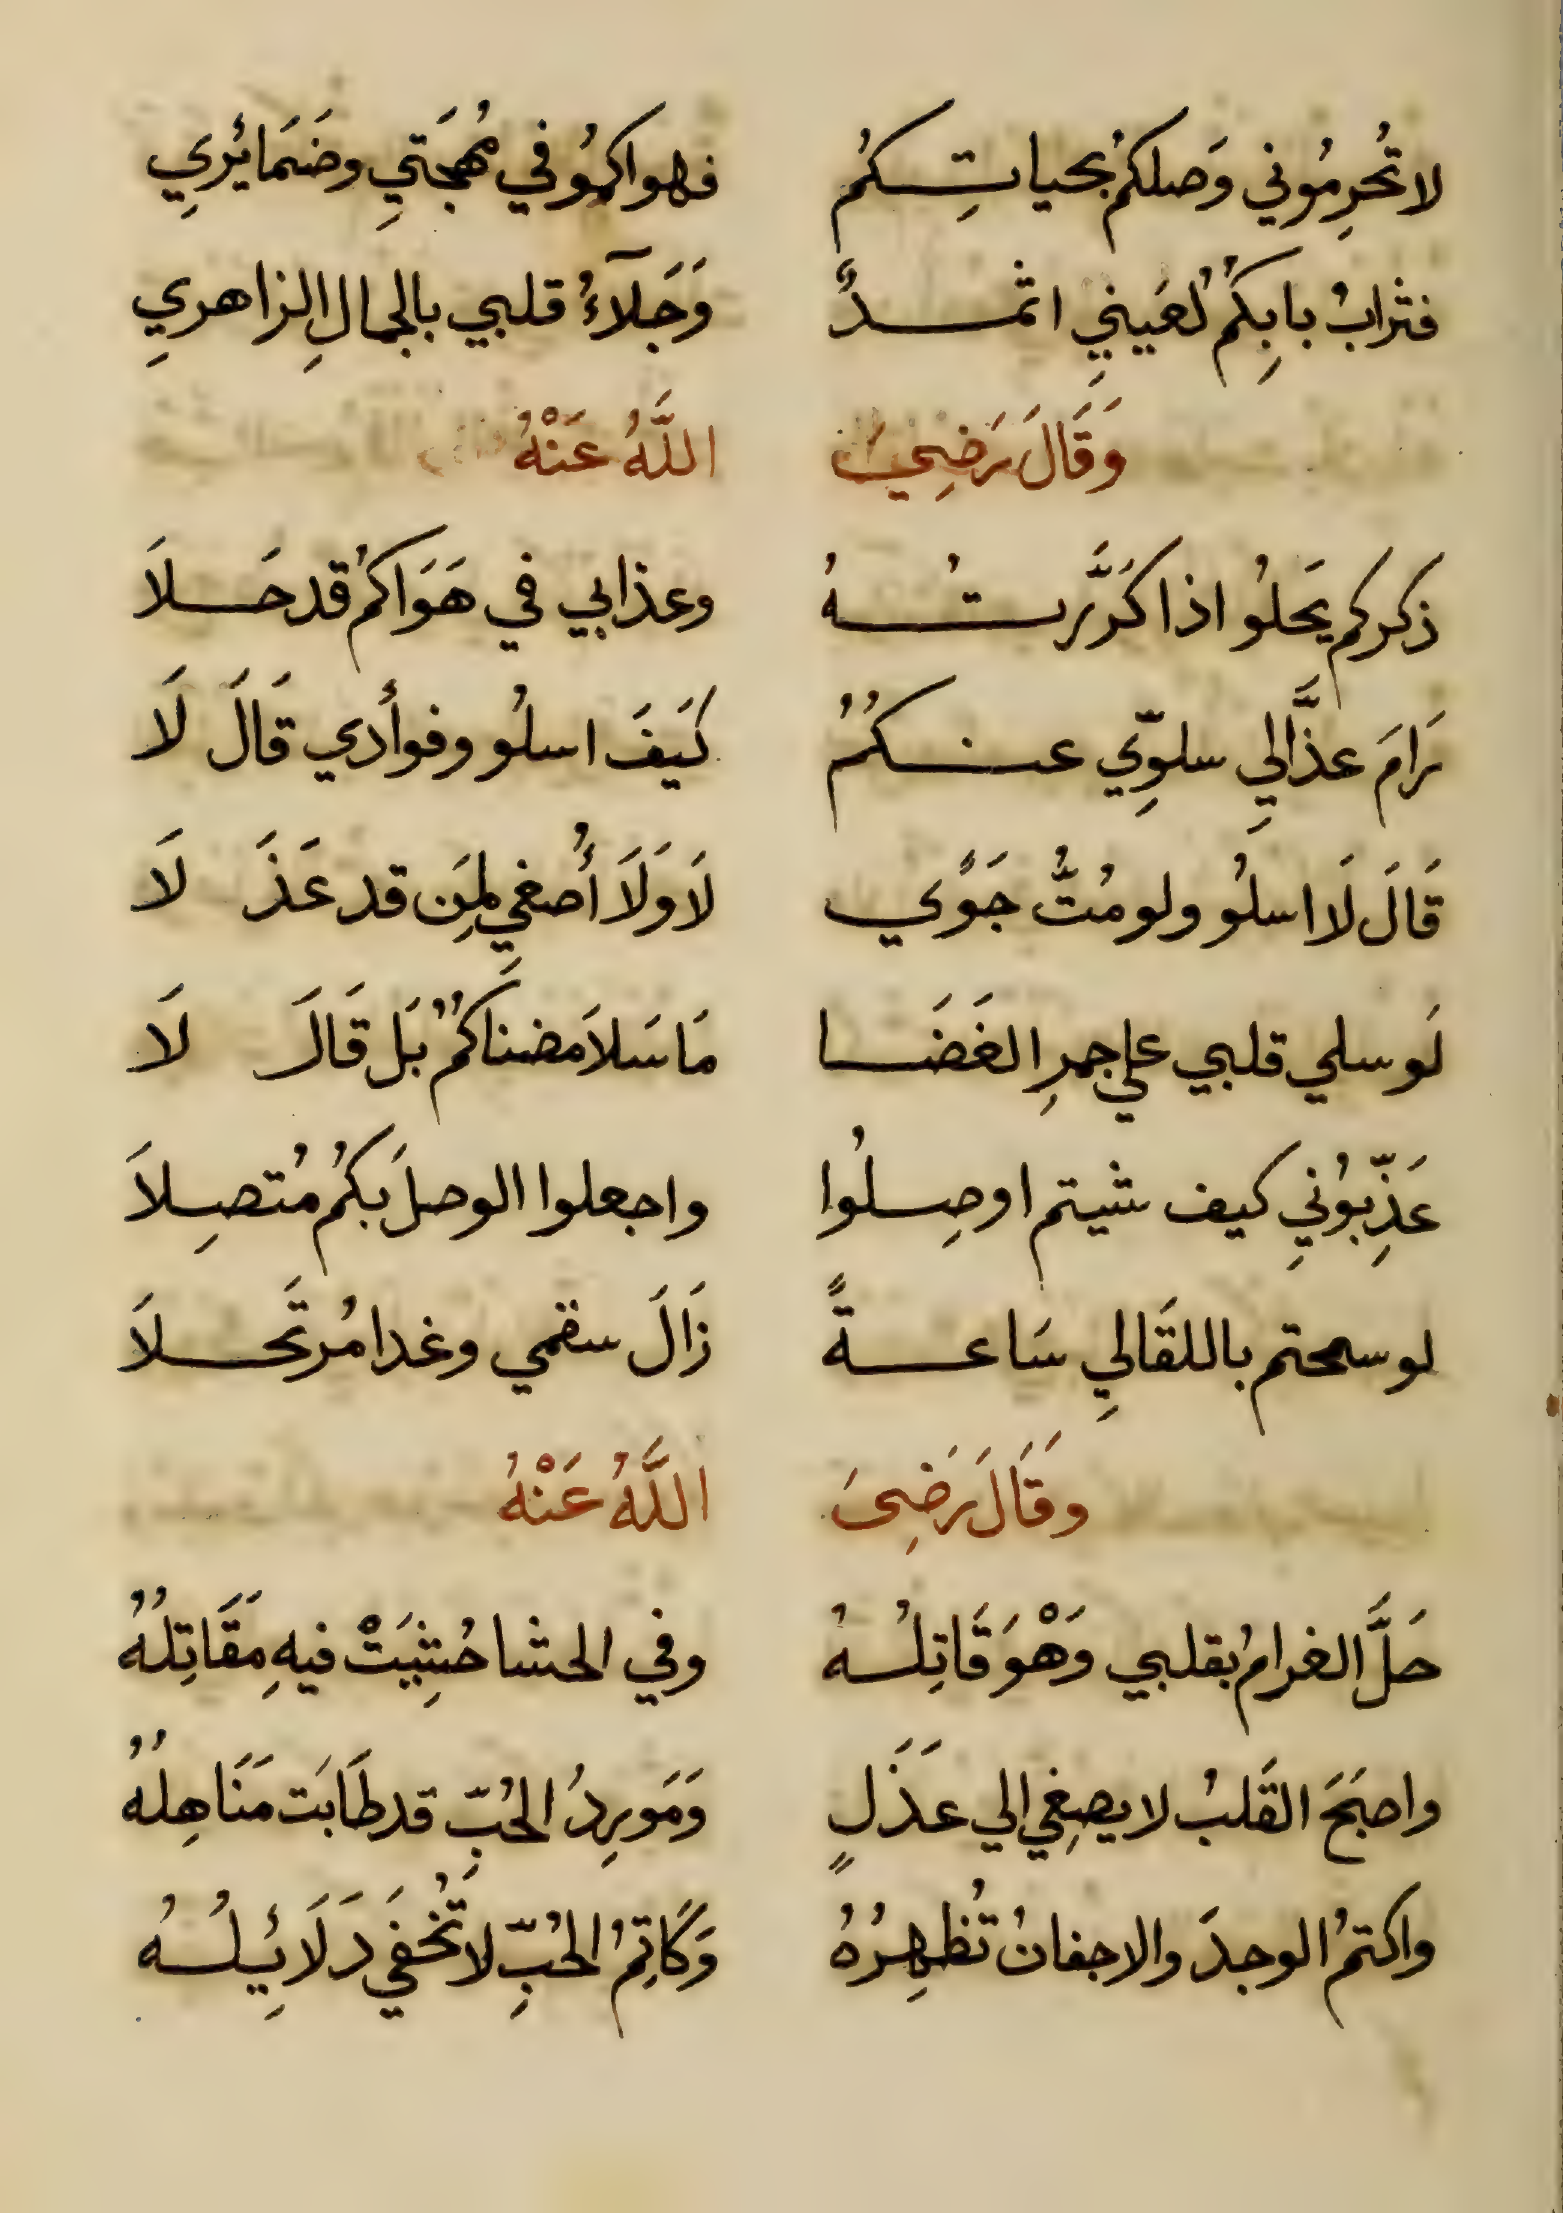 لا تُحرِمُوني وَصلكمُ بحياتِكمُ فهواكموُ في مُهجَتيِ وضَمَائرِي
فترابُ بابِكمُ لعَينيِ اثمدٌ وَجَلآءُ قلبي بالجمالِ الزاهريِ
وَقَالَ رَضِيَ اللَّهُ عَنْهُ
ذكركم يَحلوُ اذا كَرَّرتُهُ وعذابي في هَوَاكمُ قد حَلاَ
رَامَ عذَّاليِ سلوِّي عنكُمُ كَيَفَ اسلُو وفوأدي قَالَ لَا
قَالَ لَا اسلُو ولو مُتُّ جَوًي لَا وَلَا أُصغيِ لمِنَ قد عَذَلَا
لَو سلي قلبي علي جمرِ الغَضَا مَا سَلاَ مضناكمُ بَل قَالَ لَا
عَذِّبوُنيِ كيف شيتم اوصِلُوا واجعلوا الوصلَ بكمُ مُتصِلاَ
لو سمحتم باللقَا ليِ سَاعةً زَالَ سقمي وغدا مُرتَحلاَ
وقَالَ رَضِىَ اللَّهُ عَنْهُ
حَلَّ الغرامُ بقلبي وَهْوَ قَاتِلُهُ وفي الحشا حُشِيَتْ فيهِ مَقَاتِلُهُ
واصبَحَ القَلبُ لا يصغِي الي عَذَلٍ وَمَورِدُ الحُبِّ قد طَابَت مَنَاهِلُهُ
واكتمُ الوجدَ والاجفانُ تُظهِرُهُ وَكَاتِمُ الحُبِّ لا تُخفَي دَلَائِيلُهُ